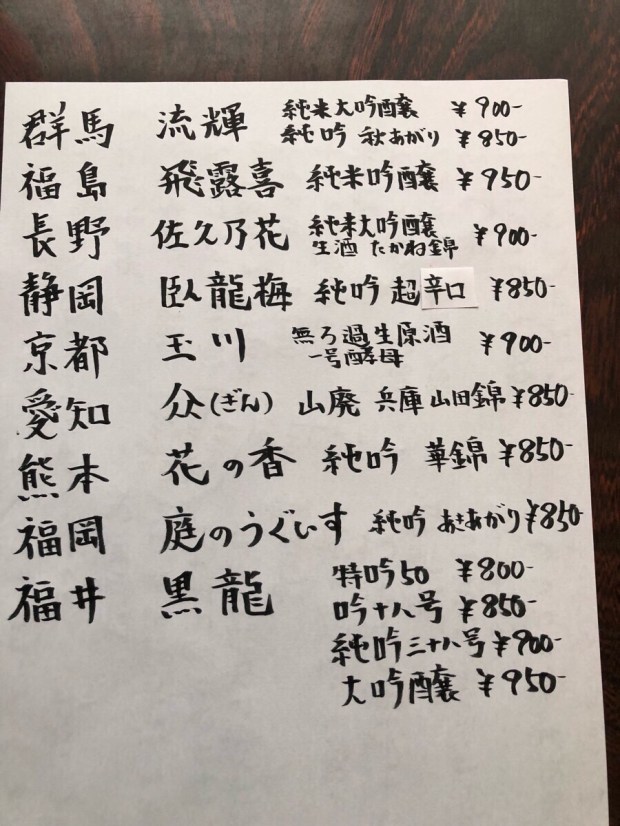 群馬 流輝 純米大吟醸 ¥900-
純吟 秋あがり ¥850-
福島 飛露喜 純米吟醸 ¥950-
長野 佐久乃花 純米大吟醸 ¥900-
生酒 たかね錦
静岡 臥龍梅 純吟 超辛口 ¥850-
京都 玉川 無ろ過生原酒 ¥900-
一号酵母
愛知 (ぎん) 山廃 兵庫山田錦 ¥850-
熊本 花の香 純吟 華錦 ¥850-
福岡 庭のうぐいす 純吟 あきあがり ¥850-
福井 黒龍 特吟50 ¥800-
吟十八号 ¥850-
純吟三十八号 ¥900-
大吟醸 ¥950-